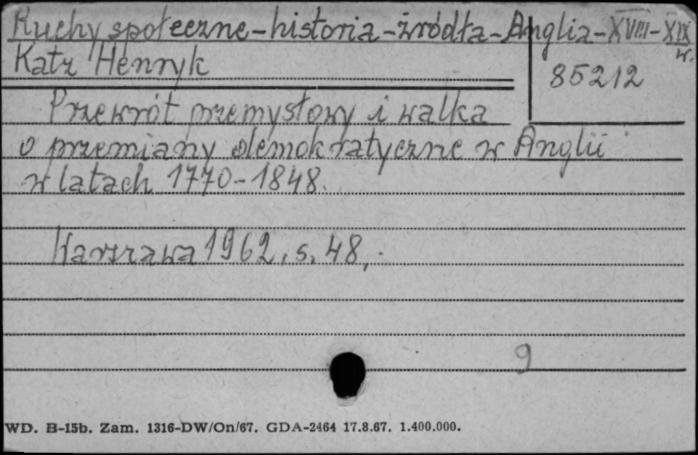 Ruchy społeczne-historia-źródła-Anglia-XVIII-XIX w.
Katz Henryk
85212
Przewrót przemysłowy i walka
o przemiany demokratyczne w Anglii
w latach 1770-1848.
Warszawa 1962, s. 48,.
9
WD. B-15b. Zam. 1316-DW/On/67. GDA-2464 17.8.67. 1.400.000.